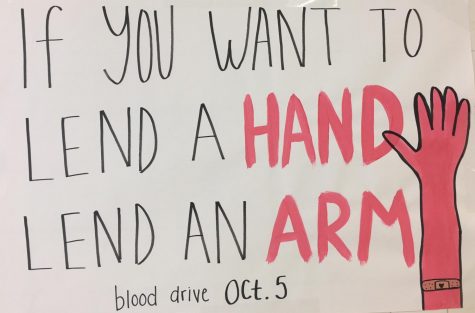 If YOU WANT TO
LEND A HAND
LEND AN ARM
blood drive Oct. 5